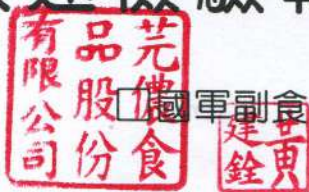 芫儂食
品股份
有限公司
□國軍副食
黃
建銓